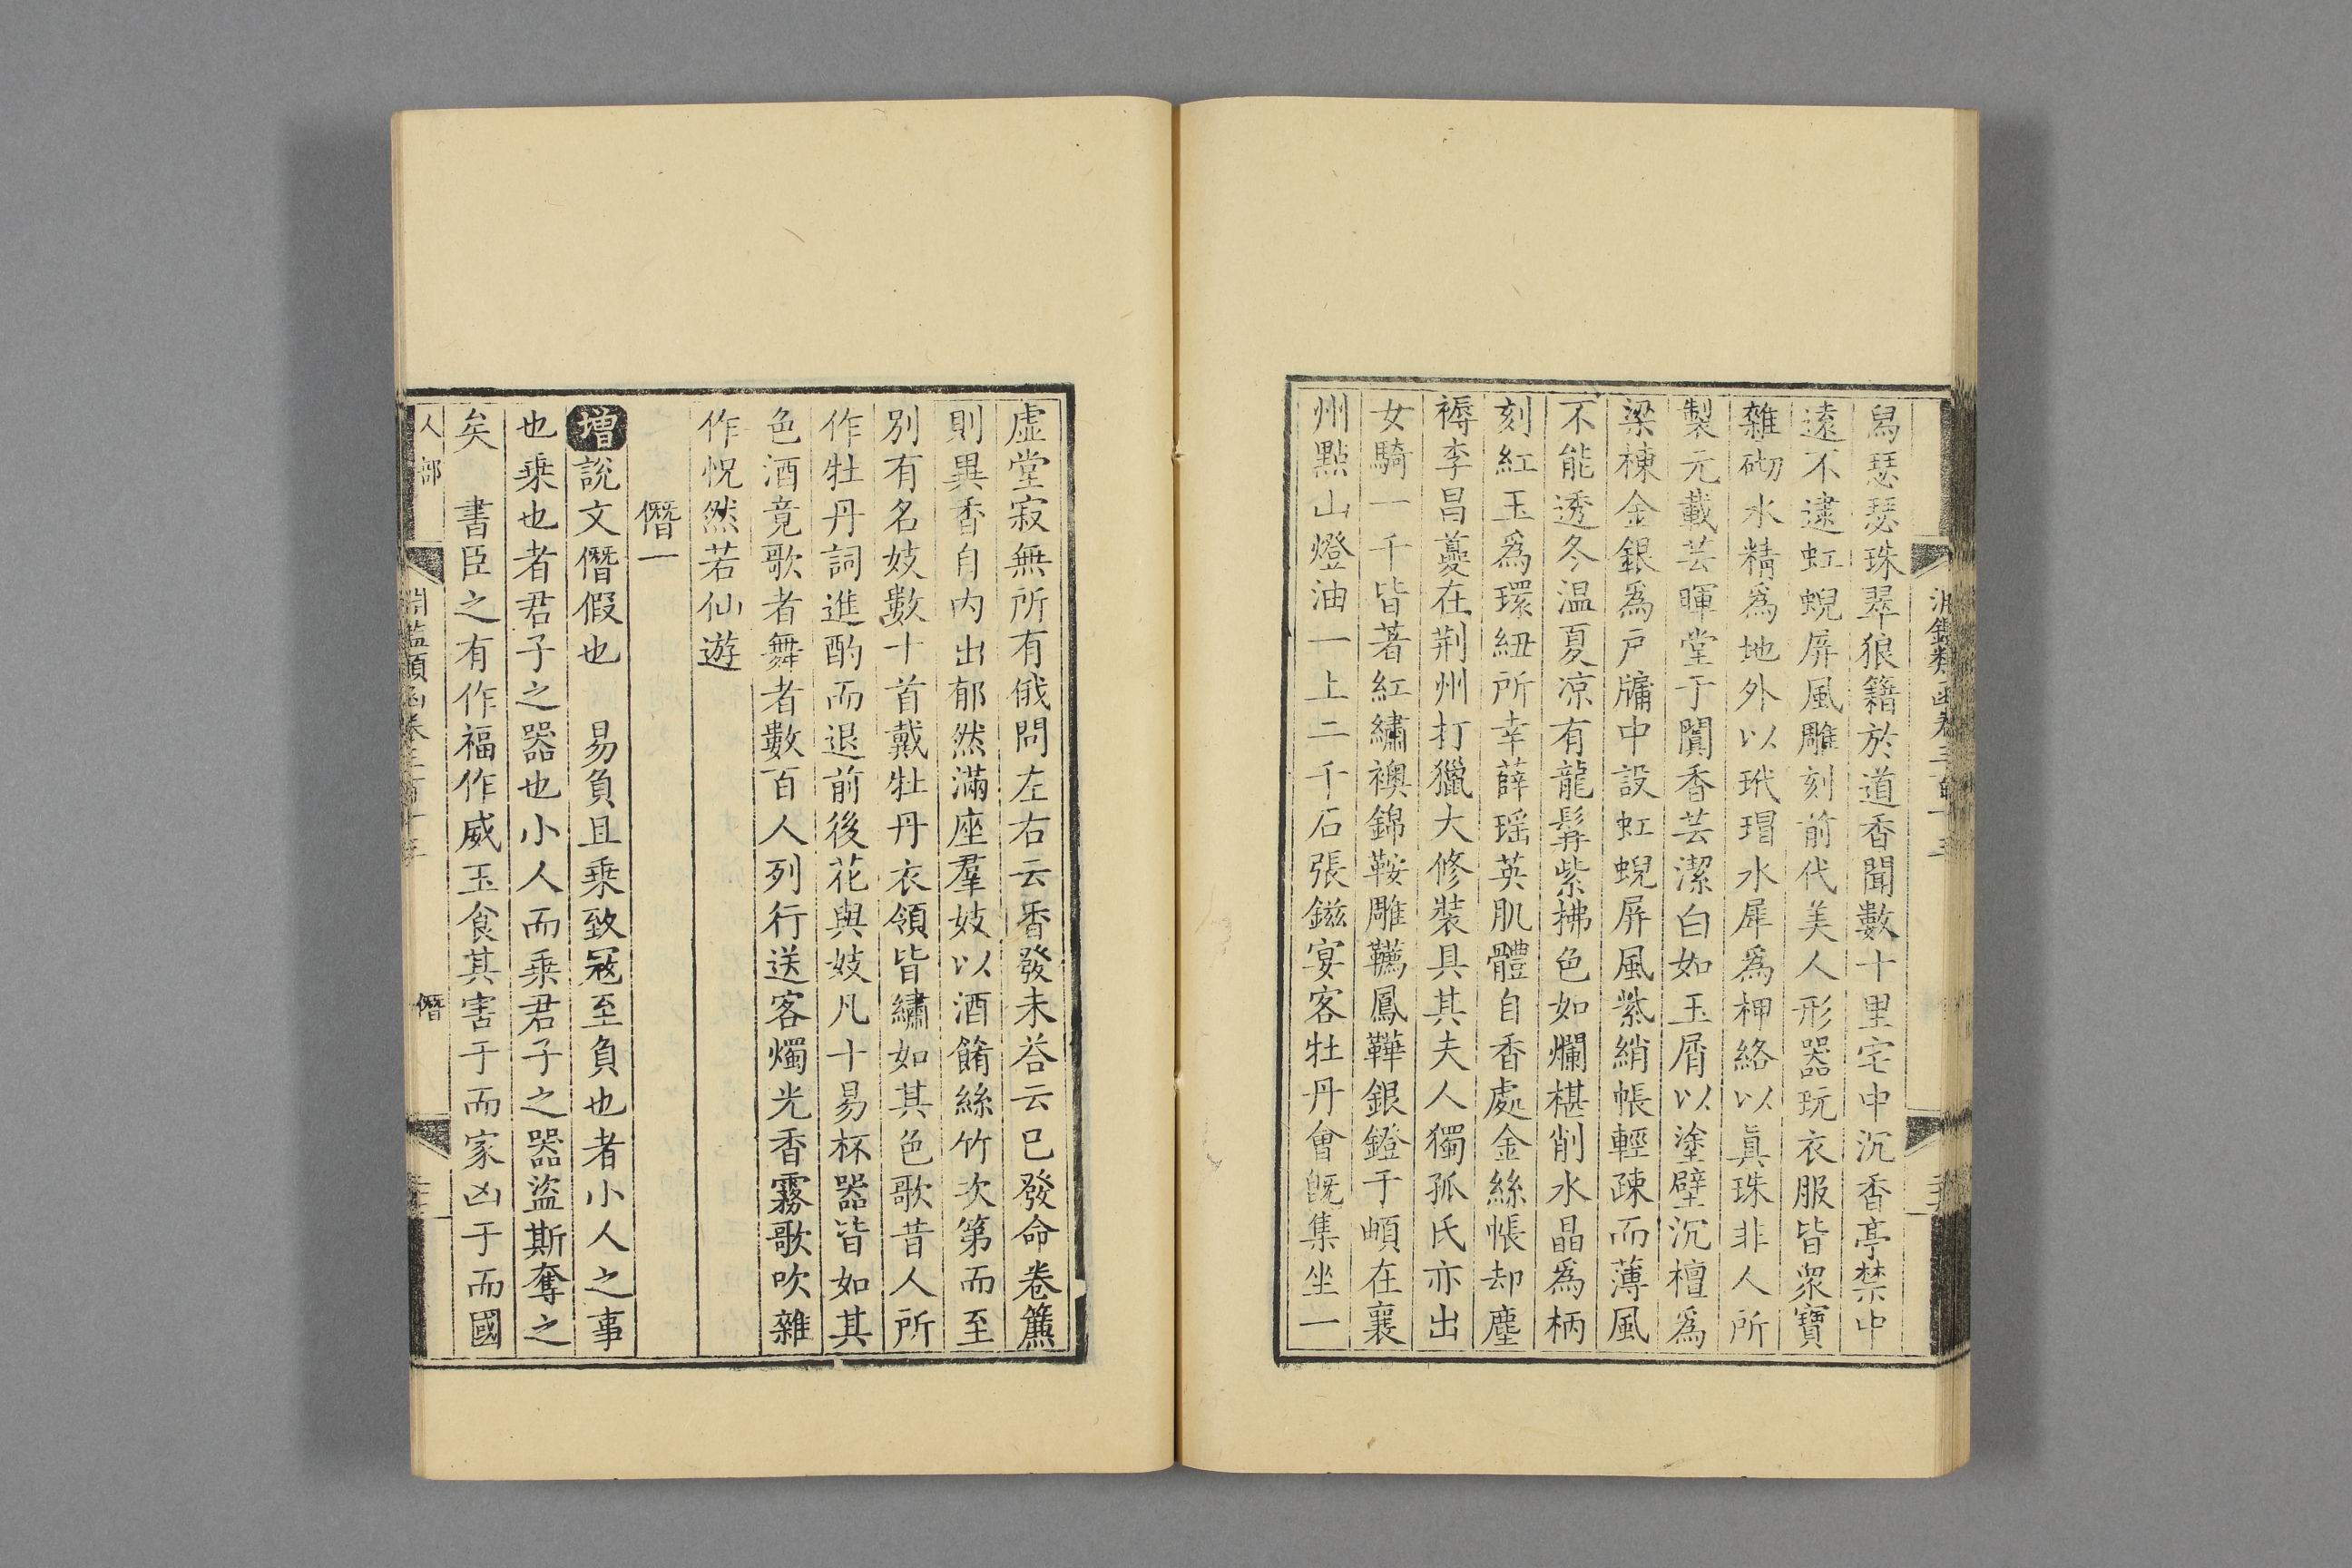 舃瑟瑟珠翠狼籍於道香聞數十里宅中沉香亭禁中
遠不逮虹蜺屏風雕刻前代美人形器玩衣服皆衆寶
雜砌水精爲地外以玳瑁水犀爲柙絡以眞珠非人所
製元載芸暉堂于闐香芸潔白如玉屑以塗壁沉檀爲
梁棟金銀爲戶牖中設虹蜺屏風紫綃帳輕疎而薄風
不能透冬温夏凉有龍髯紫拂色如爛椹削水晶爲柄
刻紅玉爲環紐所幸薛瑶英肌體自香處金絲帳却塵
褥李昌夔在荆州打獵大修裝具其夫人獨孤氏亦出
女騎一千皆著紅繡襖錦鞍雕韉鳳鞾銀鐙于頔在襄
州點山燈油一上二千石張鎡宴客牡丹會旣集坐一
虛堂寂無所有俄問左右云香發未荅云已發命卷簾
則異香自内出郁然滿座羣妓以酒餚絲竹次第而至
別有名妓數十首戴牡丹衣領皆繡如其色歌昔人所
作牡丹詞進酌而退前後花與妓凡十易杯器皆如其
色酒竟歌者舞者數百人列行送客燭光香霧歌吹雜
作怳然若仙遊
僭一
增說文僭假也　易負且乗致冦至負也者小人之事
也乗也者君子之器也小人而乗君子之器盜斯奪之
矣　書臣之有作福作威玉食其害于而家凶于而國
人部
僭